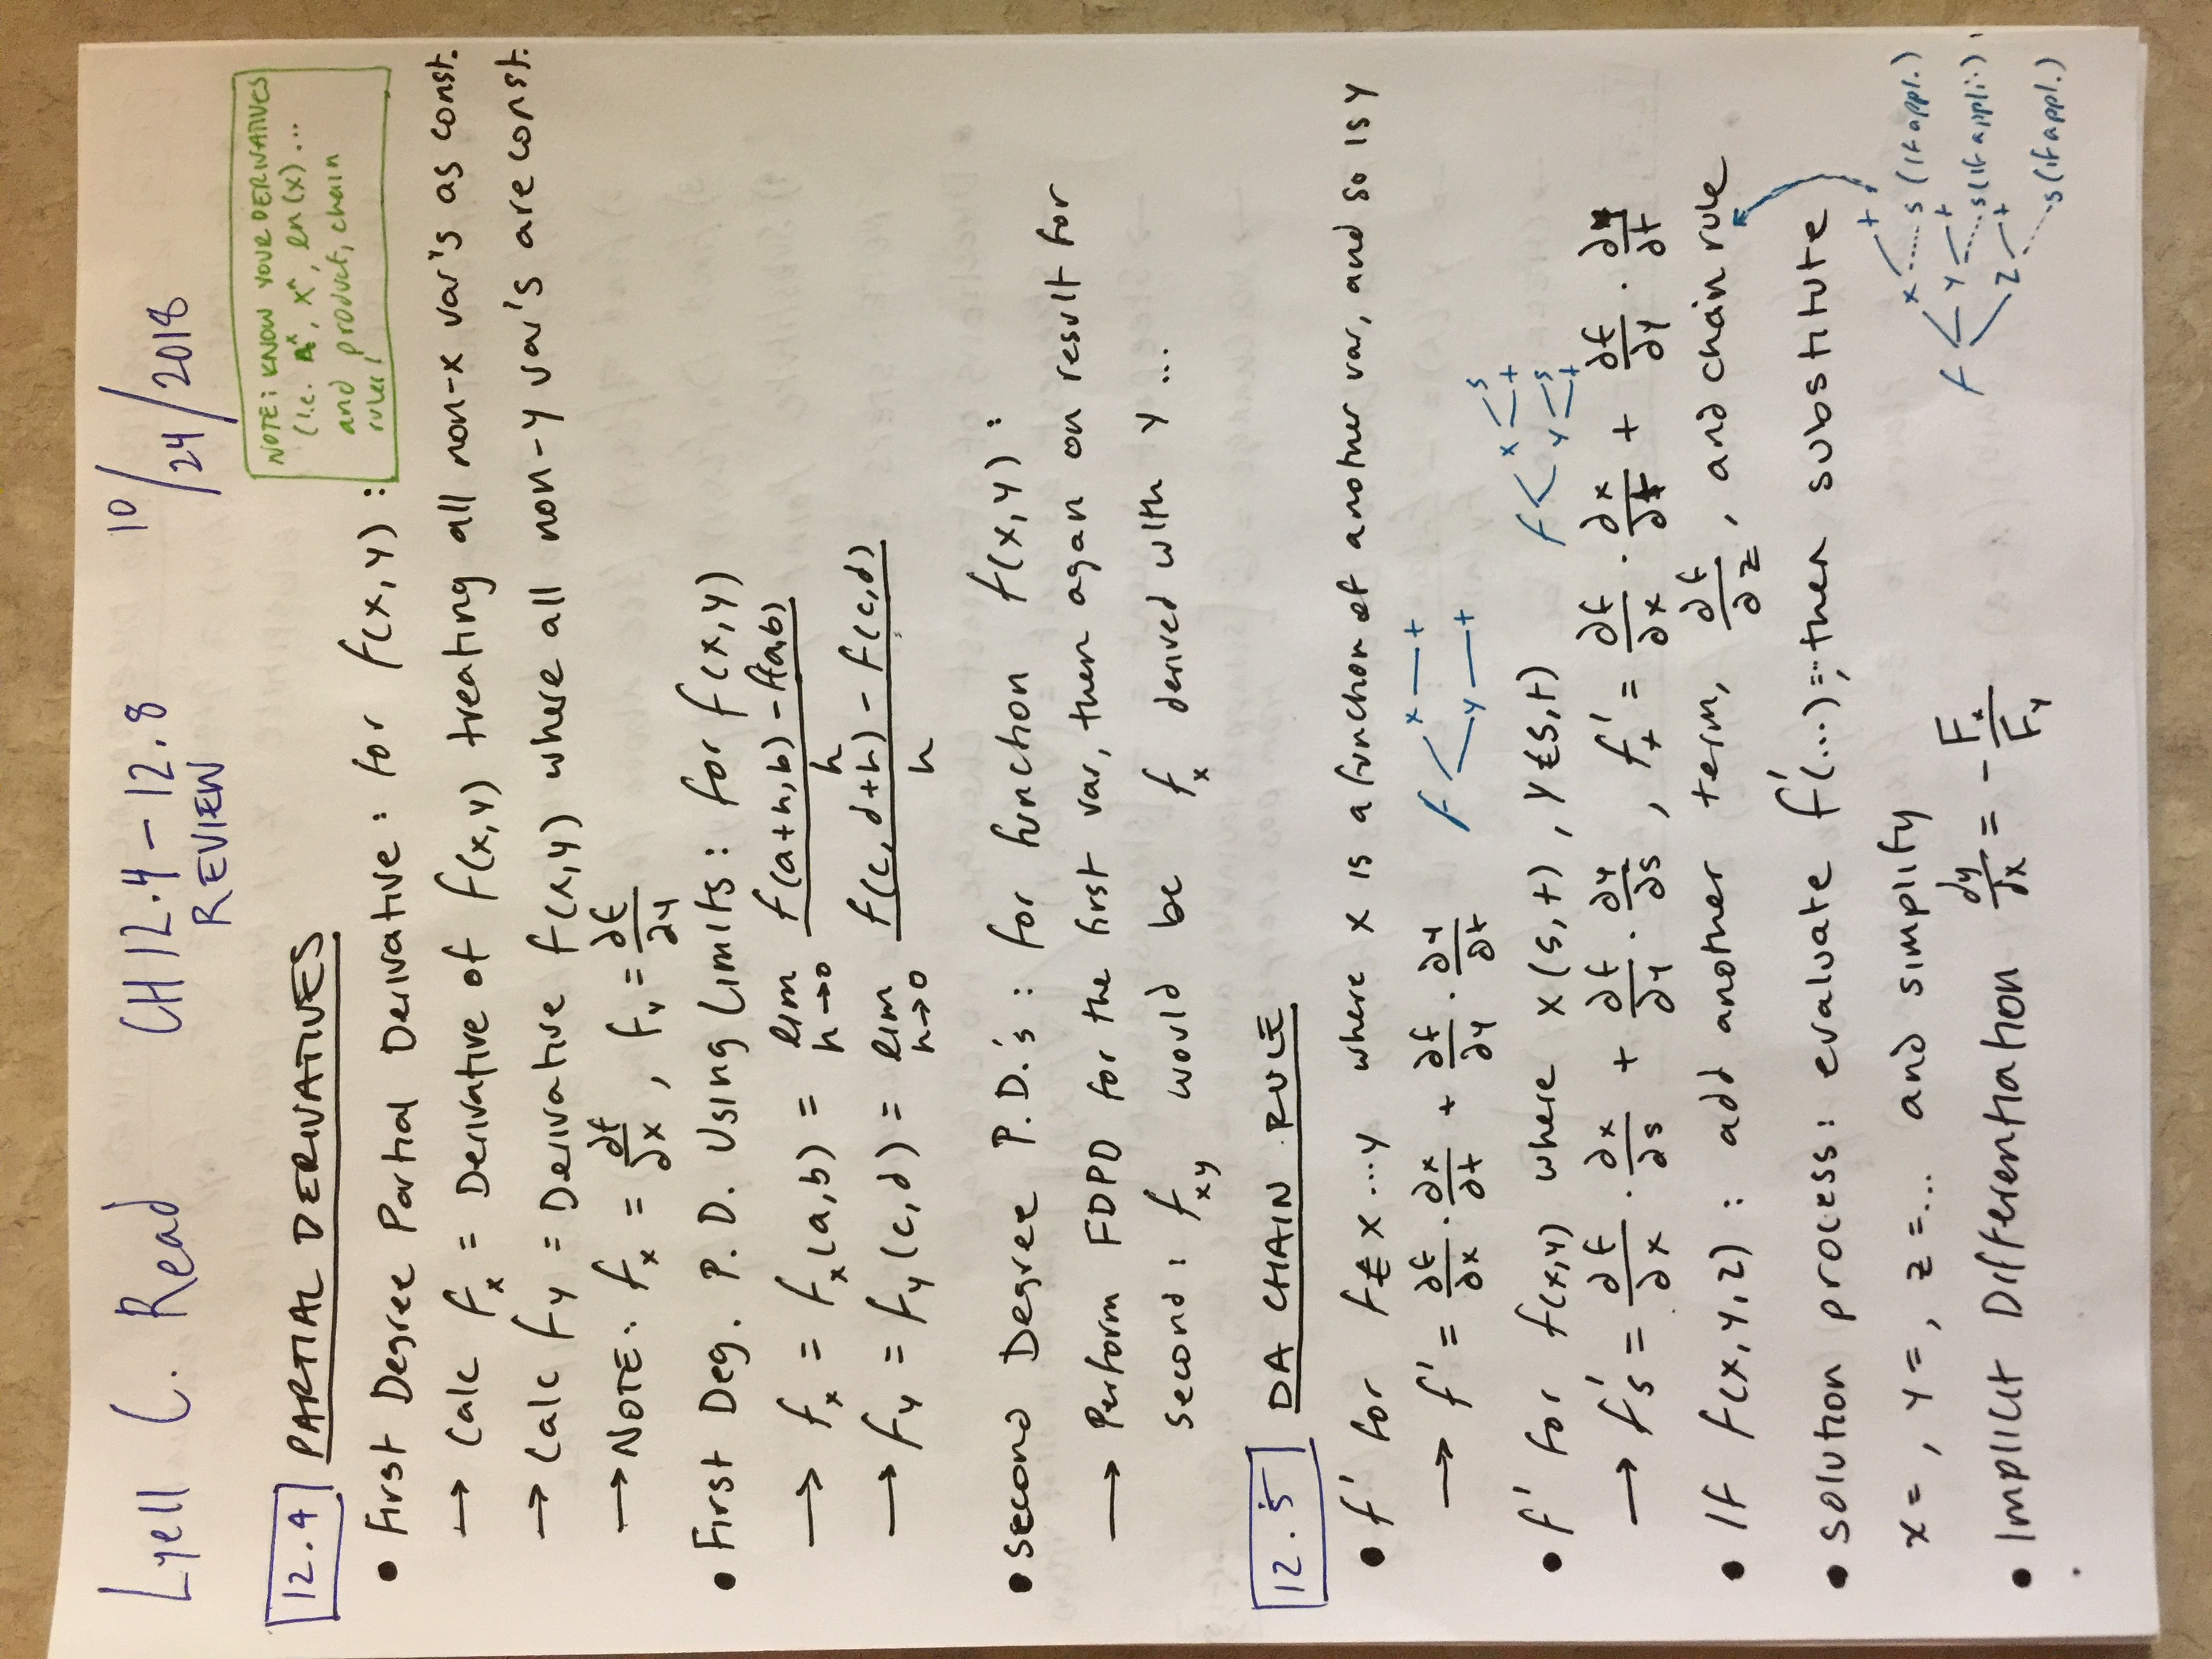 Lyell C. Read CH 12.4 – 12.8 10/24/2018
REVIEW
NOTE: KNOW YOUR DERIVATIVES
(i.e. A^x, x^n, ln(x)...
and product, chain
rules!
12.4 PARTIAL DERIVATIVES
• First Degree Partial Derivative: for f(x,y):
→ Calc f_x = Derivative of f(x,y) treating all non-x var's as const.
→ Calc f_y = Derivative f(x,y) where all non-y var's are const.
→ NOTE: f_x = ∂f/∂x, f_y = ∂f/∂y
• First Deg. P. D. Using Limits: for f(x,y)
→ f_x = f_x(a,b) = lim h→0 (f(a+h,b) - f(a,b))/h
→ f_y = f_y(c,d) = lim h→0 (f(c,d+h) - f(c,d))/h
• Second Degree P.D.'s: for function f(x,y):
→ Perform FDPD for the first var, then again on result for
second: f_xy would be f_x derived with y...
12.5 DA CHAIN RULE
• f' for f x...y where x is a function of another var, and so is y
→ f' = ∂f/∂x · ∂x/∂t + ∂f/∂y · ∂y/∂t f x t y t
• f' for f(x,y) where x(s,t), y(s,t) f x s t y s t
→ f's = ∂f/∂x · ∂x/∂s + ∂f/∂y · ∂y/∂s, f't = ∂f/∂x · ∂x/∂t + ∂f/∂y · ∂y/∂t
• If f(x,y,z): add another term, ∂f/∂z, and chain rule
• solution process: evaluate f'(...)=; then substitute
x= , y= , z=... and simplify
• Implicit Differentiation dy/dx = - F_x/F_y
t
x s (if appl.)
f y t
s (if appli.)
z t
s (if appl.)